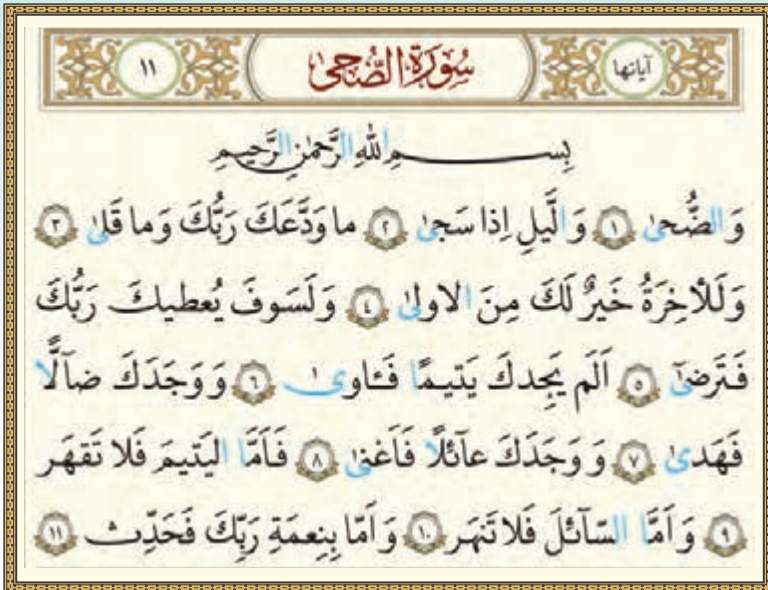 آیاتها سُورَةُ الضُّحىٰ ١١
بِسـمِ اللهِ الرَّحمٰنِ الرَّحیمِ
وَ الضُّحىٰ ١ وَ الَّیلِ اِذا سَجىٰ ٢ ما وَدَّعَكَ رَبُّكَ وَ ما قَلىٰ ٣
وَ لَلْاٰخِرَةُ خَیرٌ لَكَ مِنَ الاولىٰ ٤ وَ لَسَوفَ یُعطیكَ رَبُّكَ
فَتَرضىٰٓ ٥ اَلَم یَجِدكَ یَتیـمًا فَـٔاوىٰ ٦ وَ وَجَدَكَ ضآلًّا
فَهَدىٰ ٧ وَ وَجَدَكَ عآئلًا فَاَغنىٰ ٨ فَاَمَّا الیَتیمَ فَلا تَقهَر
٩ وَ اَمَّا السّآئلَ فَلا تَنهَر ١٠ وَ اَمّا بِنِعمَةِ رَبِّكَ فَحَدِّث ١١